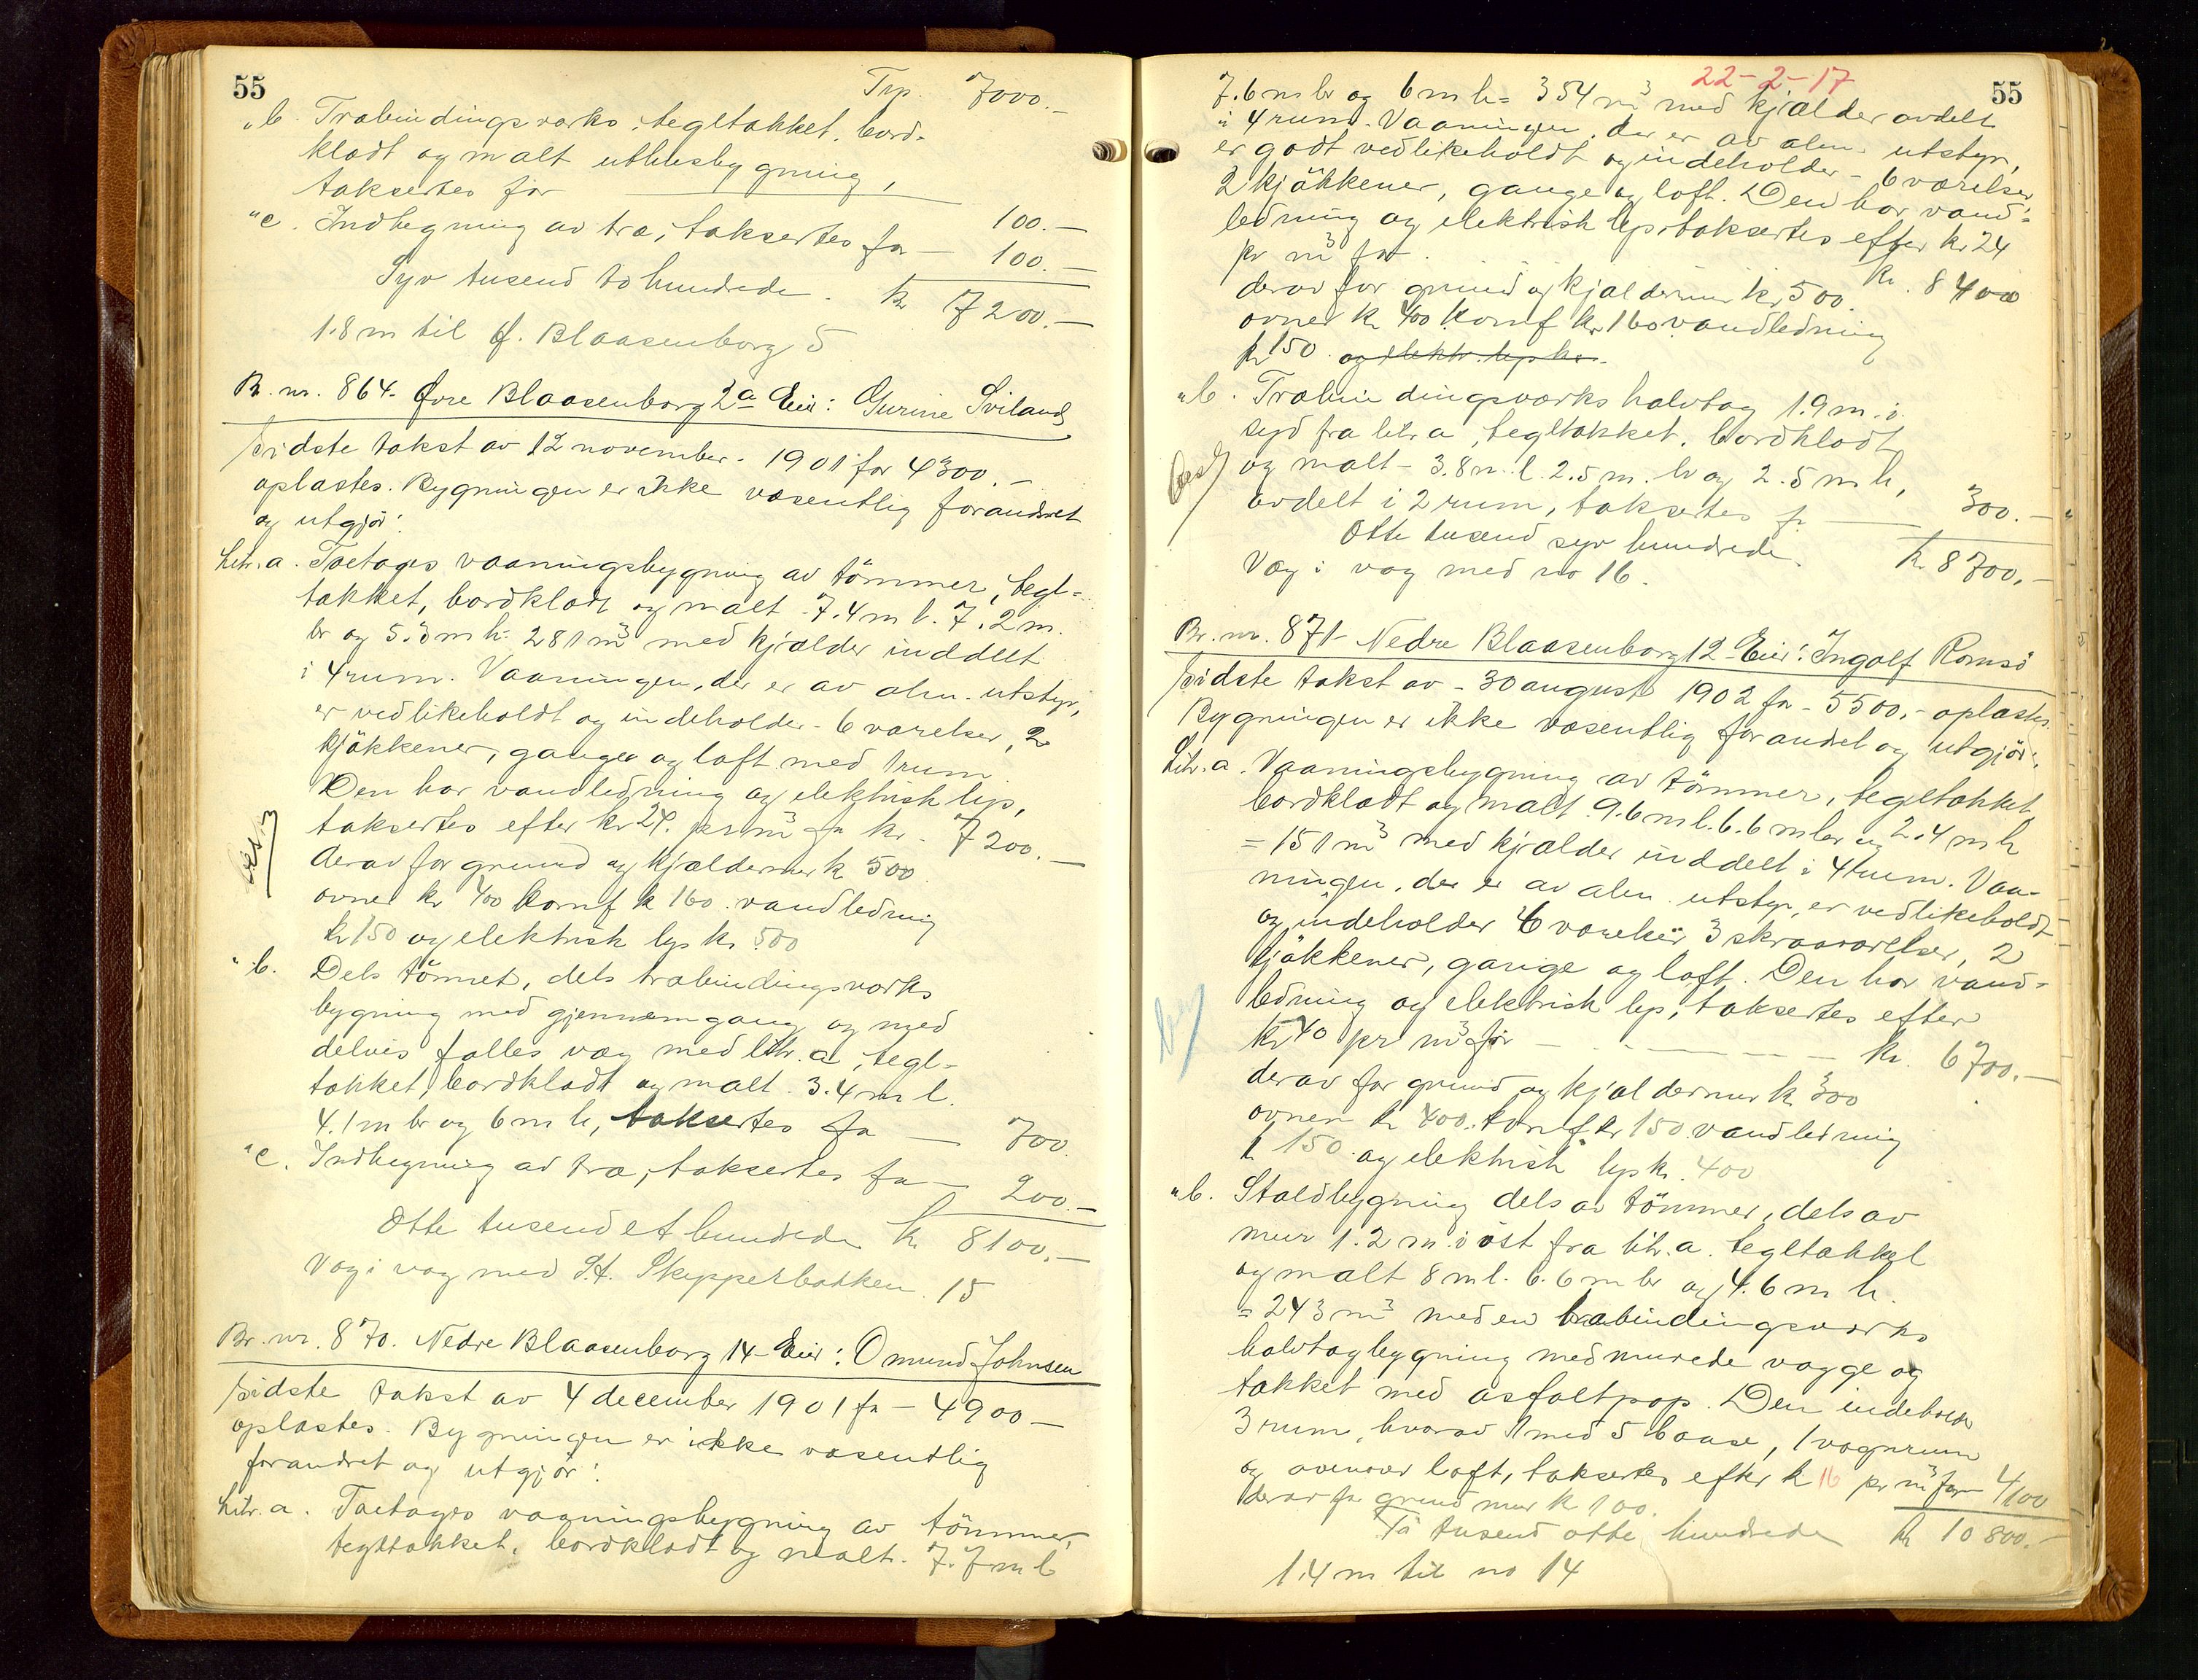 55
Trp. 7000.-
"b. Træbindingsverks, tegltækket, bord-
klædt og malt uthusbygning,
taksertes for 100.-
"c. Indhegning av træ, taksertes for - 100.-
Syv tusend to hundrede. kr 7200.-
1.8 m til Ø. Blaasenborg 5
Br. nr. 864. Øvre Blaasenborg 2a Eier: Gurine Sviland
Sidste takst av 12 november 1901 for 4300.-
oplæstes. Bygningen er ikke væsentlig forandret
og utgjør:
Litr. a. Toetages vaaningsbygning av tömmer, tegl-
tækket, bordklædt og malt - 7.4 m l. 7.2 m.
br og 5.3 m h = 281 m³ med kjælder inddelt
i 4 rum. Vaaningen, der er av alm. utstyr,
er vedlikeholdt og indeholder - 6 værelser, 2
kjökkener, ganger og loft med 1 rum.
Den har vandledning og elektrisk lys,
taksertes efter kr 24. pr m³ for kr. 7200.-
derav for grund og kjældermur kr 500
ovner kr 400 komf kr 160. vandledning
kr 150 og elektrisk lys kr. 500
"b. Dels tömret, dels træbindingsverks
bygning med gjennemgang og med
delvis fælles væg med litr. a, tegl-
tækket, bordklædt og malt. 3.4 m l.
4.1 m br og 6 m h, taksertes for - 700.
"c. Indhegning av træ, taksertes for - 200.-
Otte tusend et hundrede kr 8100.-
Væg i væg med St. Skipperbakken 15
Br. nr. 870. Nedre Blaasenborg 14 - Eier: Omund Johnsen
Sidste takst av 4 december 1901 for - 4900 -
oplæstes. Bygningen er ikke væsentlig
forandret og utgjör:
Litr. a. Toetages vaaningsbygning av tömmer,
tegltækket, bordklædt og malt. 7.7 m l
22-2-17
55
7.6 m br og 6 m h = 354 m³ med kjælder avdelt
i 4 rum. Vaaningen, der er av alm. utstyr,
er godt vedlikeholdt og indeholder - 6 værelser,
2 kjökkener, gange og loft. Den har vand-
ledning og elektrisk lys, taksertes efter kr 24
pr m³ for kr. 8400
derav for grund og kjældermur kr 500.
ovner kr 400 komf kr 160 vandledning
kr 150 og elektr. lys kr.
"b. Træbindingsverks halvtag 1.9 m. i
syd fra litr a, tegltækket, bordklædt
og malt - 3.8 m l. 2.5 m. br og 2.5 m h,
avdelt i 2 rum, taksertes for 300.-
Otte tusend syv hundrede. kr 8700.-
Væg i væg med no 16.
Br. nr. 871 - Nedre Blaasenborg 12 - Eier: Ingolf Romsö
Sidste takst av - 30 august 1902 for - 5500.- oplæstes.
Bygningen er ikke væsentlig forandret og utgjör:
Litr. a. Vaaningsbygning av tömmer, tegltækket,
bordklædt og malt. 9.6 m l. 6.6 m br og 2.4 m h
= 151 m³ med kjælder inddelt i 4 rum. Vaa-
ningen, der er av alm utstyr, er vedlikeholdt
og indeholder 6 værelser 3 skraaværelser, 2
kjökkener, gange og loft. Den har vand-
ledning og elektrisk lys, taksertes efter
kr 40 pr m³ for - kr. 6700.-
derav for grund og kjældermur kr 300
ovner kr 400. komf kr 150 vandledning
kr 150. og elektrisk lys kr. 400
"b. Staldbygning dels av tömmer, dels av
mur 1.2 m i öst fra litr. a. tegltækket
og malt 8 m l. 6.6 m br og 4.6 m h.
= 243 m³ med en træbindingsverks
halvtagbygning med murede vægge og
tækket med asfaltpap. Den indeholder
3 rum, hvorav 1 med 5 baase, 1 vognrum
og ovenover loft, taksertes efter kr 16 pr m³ for - 4100
derav for grundmur kr 100.
Ti tusend otte hundrede kr 10800.-
1.4 m til no 14